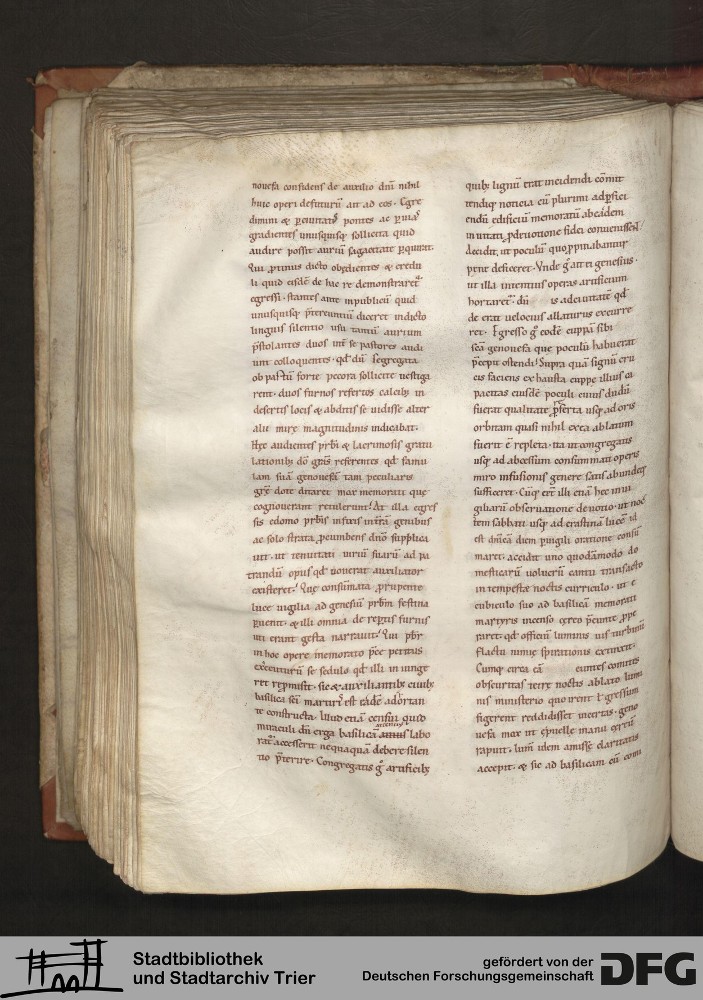 novefa confidens de auxilio dn̄i nihil
huic operi defuturū ait ad eos. Egre
dimini & p̱ civitatis pontes ac p̱ vias
gradientes unusquisq; sollicita quid
audire possit aurium sagacitate p̱quirat.
Qui p̱tinus dicto obędientes & credu
li quid eisdē de hac re demonstraret᷑
egressi. stantes ante inpublicū quid
unusquisq; p̄tereuntiū diceret indicto
linguis silentio usu tantū aurium
p̄stolantes duos int̄ se pastores audi
unt colloquentes. qd̄ dū segregata
ob pastū forte pecora sollicite vestiga
rent. duos furnos refertos calcib; in
desertis locis & abditis se vidisse alter
alii mirę magnitudinis indicabat.
Hęc audientes p̄rbi & lacrimosis gratu
lationib; dō grās referentes qd̄ famu
lam suā genovefā tam peculiaris
grē dote ditaret mox memorati que
cognoverant retulerunt. At illa egres
sis e domo p̄rbis infixis in terrā genibus
ac solo strata p̱cumbens dn̄o supplica
vit. ut tenuitati virium suarū ad pa
trandū opus qd̄ voverat auxiliator
existeret. Quę consūmata p̱rupente
luce vigilia ad genesiū p̄rbm festina
p̱venit. & illi omnia de rep̱tis furnis
uti erant gesta narravit. Qui p̄br
in hoc opere memorato p̄ce peritus
executurū se sedulo qd̄ illi in iunge
ret rep̱misit. sic & auxiliantib; civib;
basilica sc̄i martyris est eadē adortan
te constructa. Illud etiā censui quid
miraculi dū erga basilicā labo
rat᷑ accesserit nequaquā debere silen
tio p̄terire. Congregatis g̊ artificib;
quib; lignū erat incidendi cōmit
tendiq; noticia cū plurimi ad p̱fici
endū edificiū memoratū ab eidem
in vitati p̱ devotione fidei convenissent
decidit ut poculū quo p̱pinabantur
penit deficeret. Unde g̊ ait ei genesius.
ut illa intentius operas artificum
hortaret᷑. dū is ad civitatē qd̄
de erat velocius allaturus excurre
ret. Egresso g̊ eodē cuppā sibi
sc̄a genovefa que poculū habuerat
p̄cepit ostendi. Supra quā signū cru
cis faciens exhausta cuppe illius ca
pacitas eiusdē poculi cuius dudū
fuerat qualitate p̱serta usq; ad oris
orbitam quasi nihil ex ea ablatum
fuerit ē repleta. ita ut congregatis
usq; ad abcessum consummati operis
miro infusionis genere satis abundeq;
sufficeret. Cūq; erat illi etiā hec in vi
giliarū observatione devotio. ut noc
tem sabbati usq; ad crastinā lucē id
est dn̄icā diem p̱vigili oratione consū
maret. accidit uno quodāmodo do
mesticarū volucrū cantu transacto
in tempestę noctis curriculo. ut e
cubiculo suo ad basilicā memorati
martyris incenso cereo p̄eunte p̱pe
raret. qd̄ officiū luminis vis turbinū
flactu nimię spirationis extinxit.
Cumq; circa eā euntes comites
obscuritas tetrę noctis ablato lumi
nis ministerio quo irent l̄ gressum
figerent reddidisset incertas. geno
vefa mox ut e puelle manu cereū
rapuit. lum̄ idem amisse claritatis
accepit. & sic ad basilicam cū comi
Stadtbibliothek
und Stadtarchiv Trier
gefördert von der
Deutschen Forschungsgemeinschaft
DFG